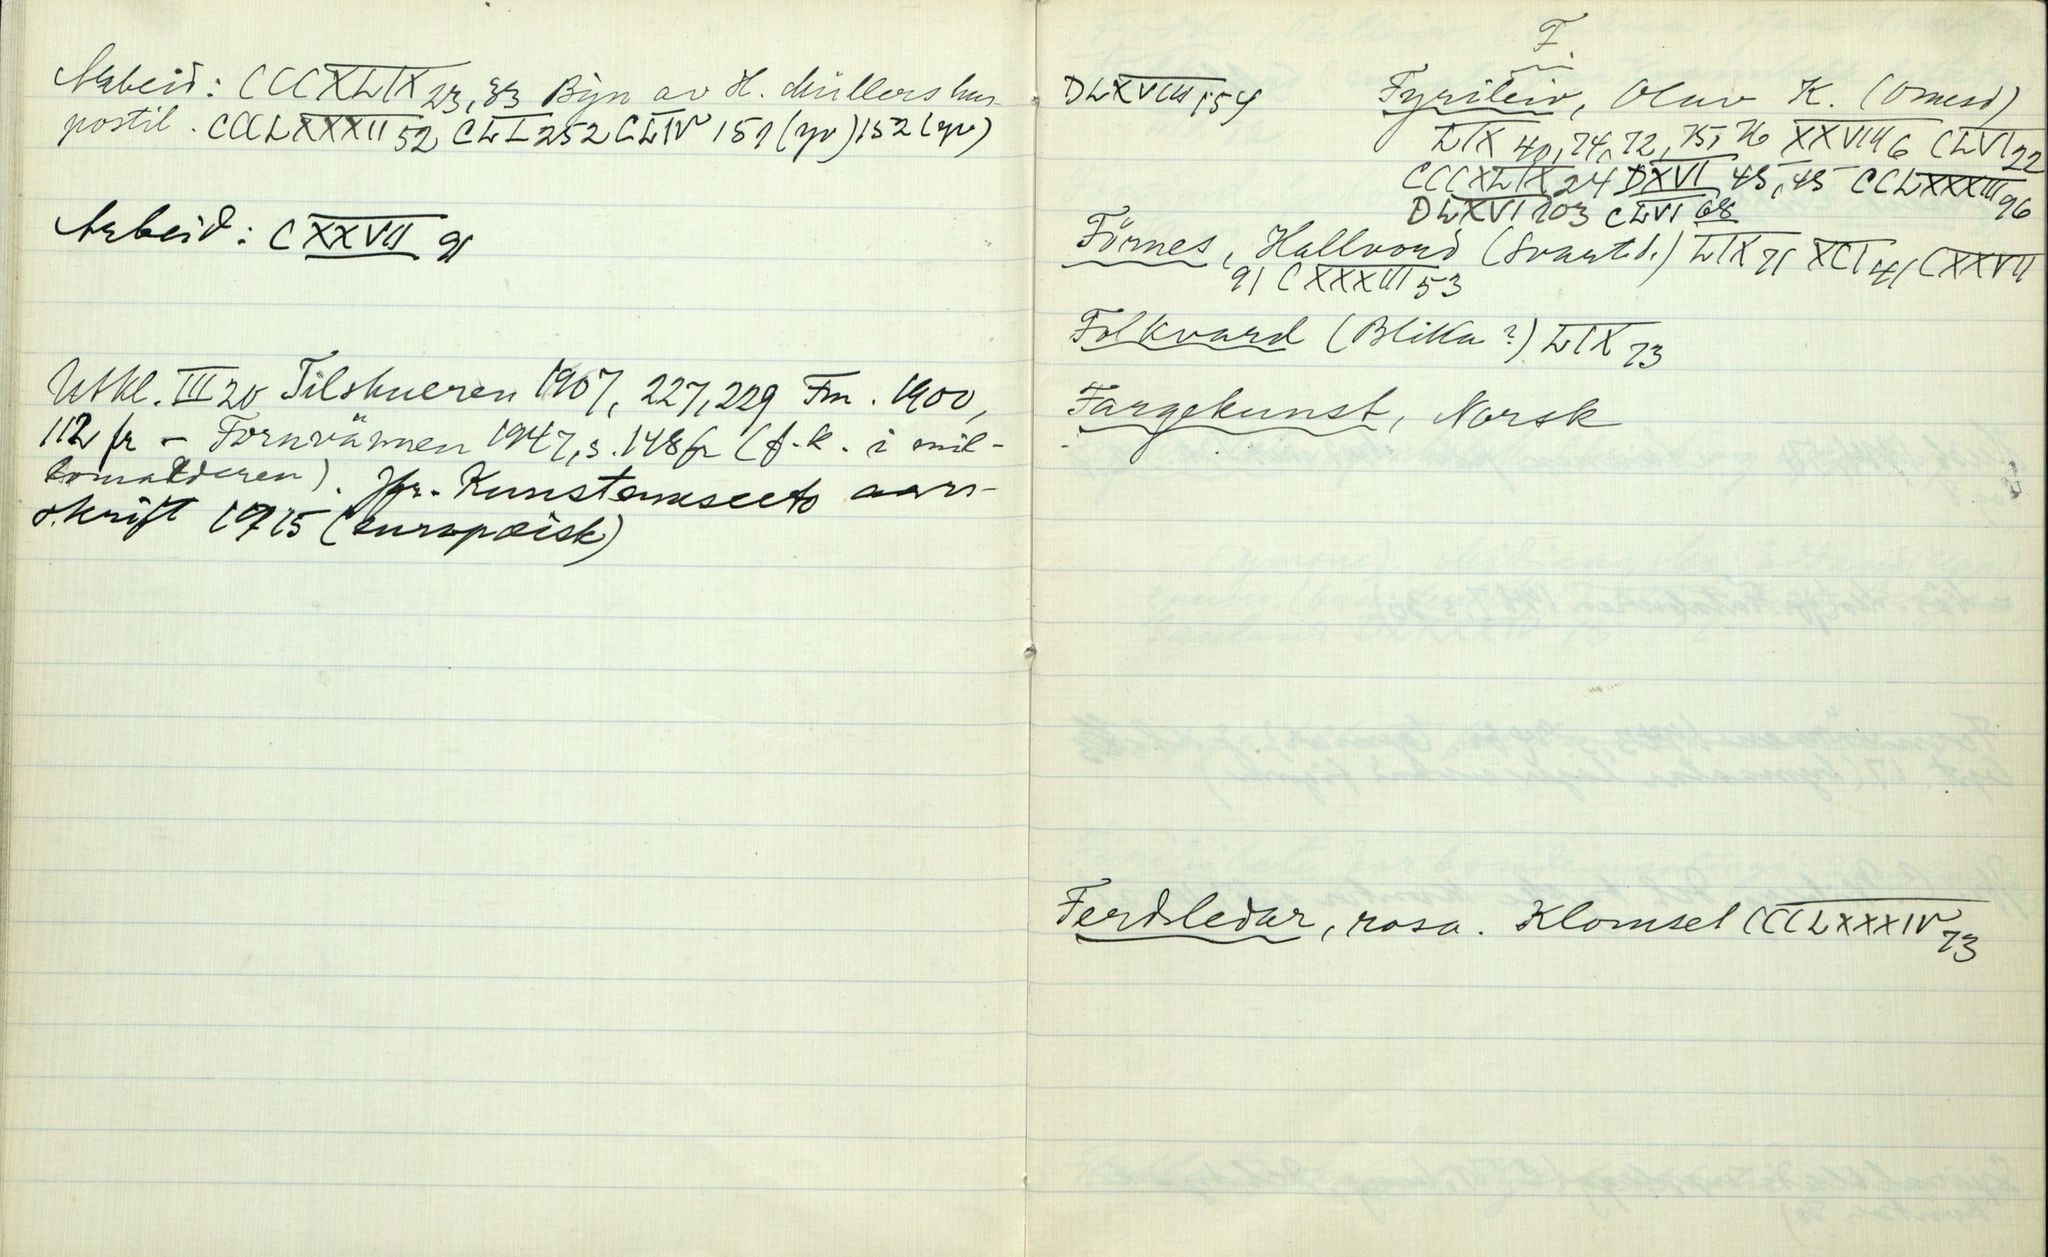 Arbeid: CCCXLIX 23, 33 Bijn av H. Müllers hus-
postil. CCCLXXXII 52 CLI 252 CLIV 151 (yv) 152 (yv)
Arbeid: CXXVII 91
Utkl. III 20 Tilskueren 1907, 227, 229 Fm. 1900,
112 fr - Fornvännen 1947, s. 148 fr (f.k. i mil-
lomalderen). Jfr. Kunstmuseets aars-
skrift 1915 (europæisk)
F.
DLXVIII 154
Fyrileiv, Olav K. (Omesd)
LIX 40, 74, 72, 75, 76 XXVIII 6 CLVI 22
CCCXLIX 24 DXVI 45, 45 CCLXXXIII 96
DLXVI 103 CLVI 68
Förnes, Hallvord (Svartd.) LIX 71 XCI 41 CXXVII
91 CXXXIII 53
Folkvard (Blika?) LIX 73
Fargekunst, Norsk
Ferdsledar, rosa. Klomset CCCLXXXIV 73